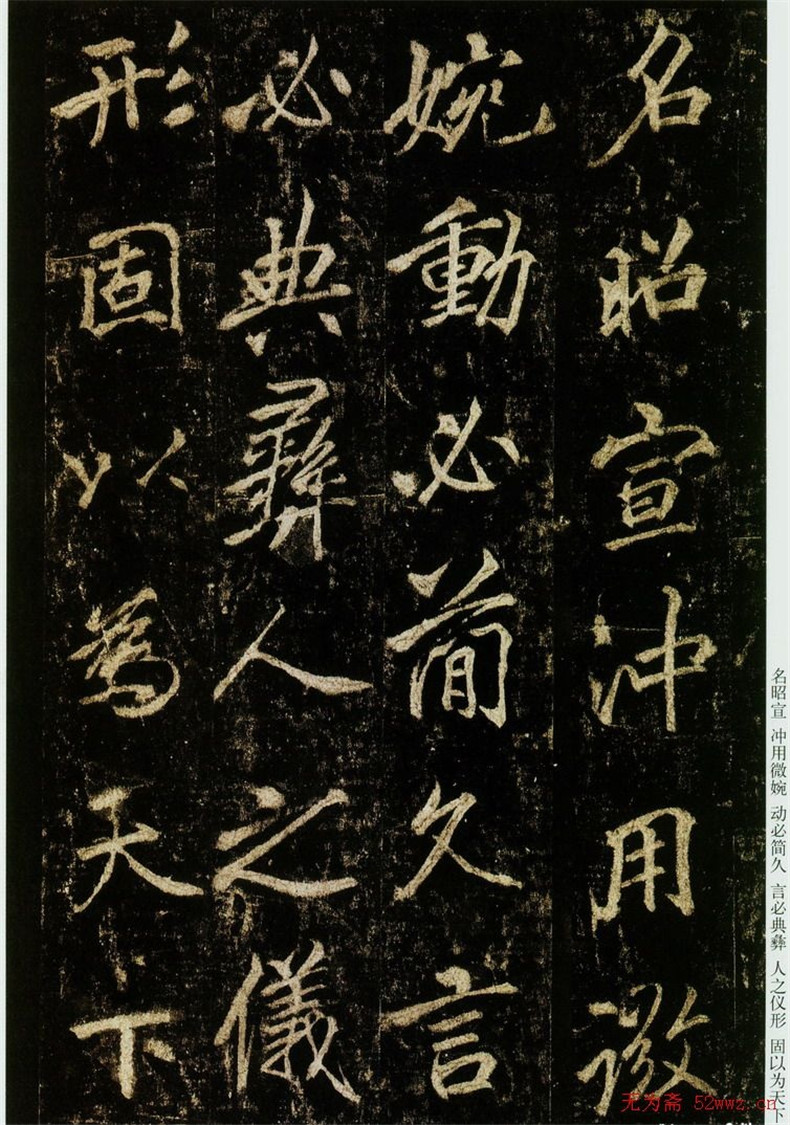 名昭宣沖用微
婉動必簡久言
必典彝人之儀
形固以為天下
名昭宣 冲用微婉 动必简久 言必典彝 人之仪形 固以为天下
无为斋 52wwz.cn